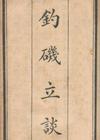 釣磯立談